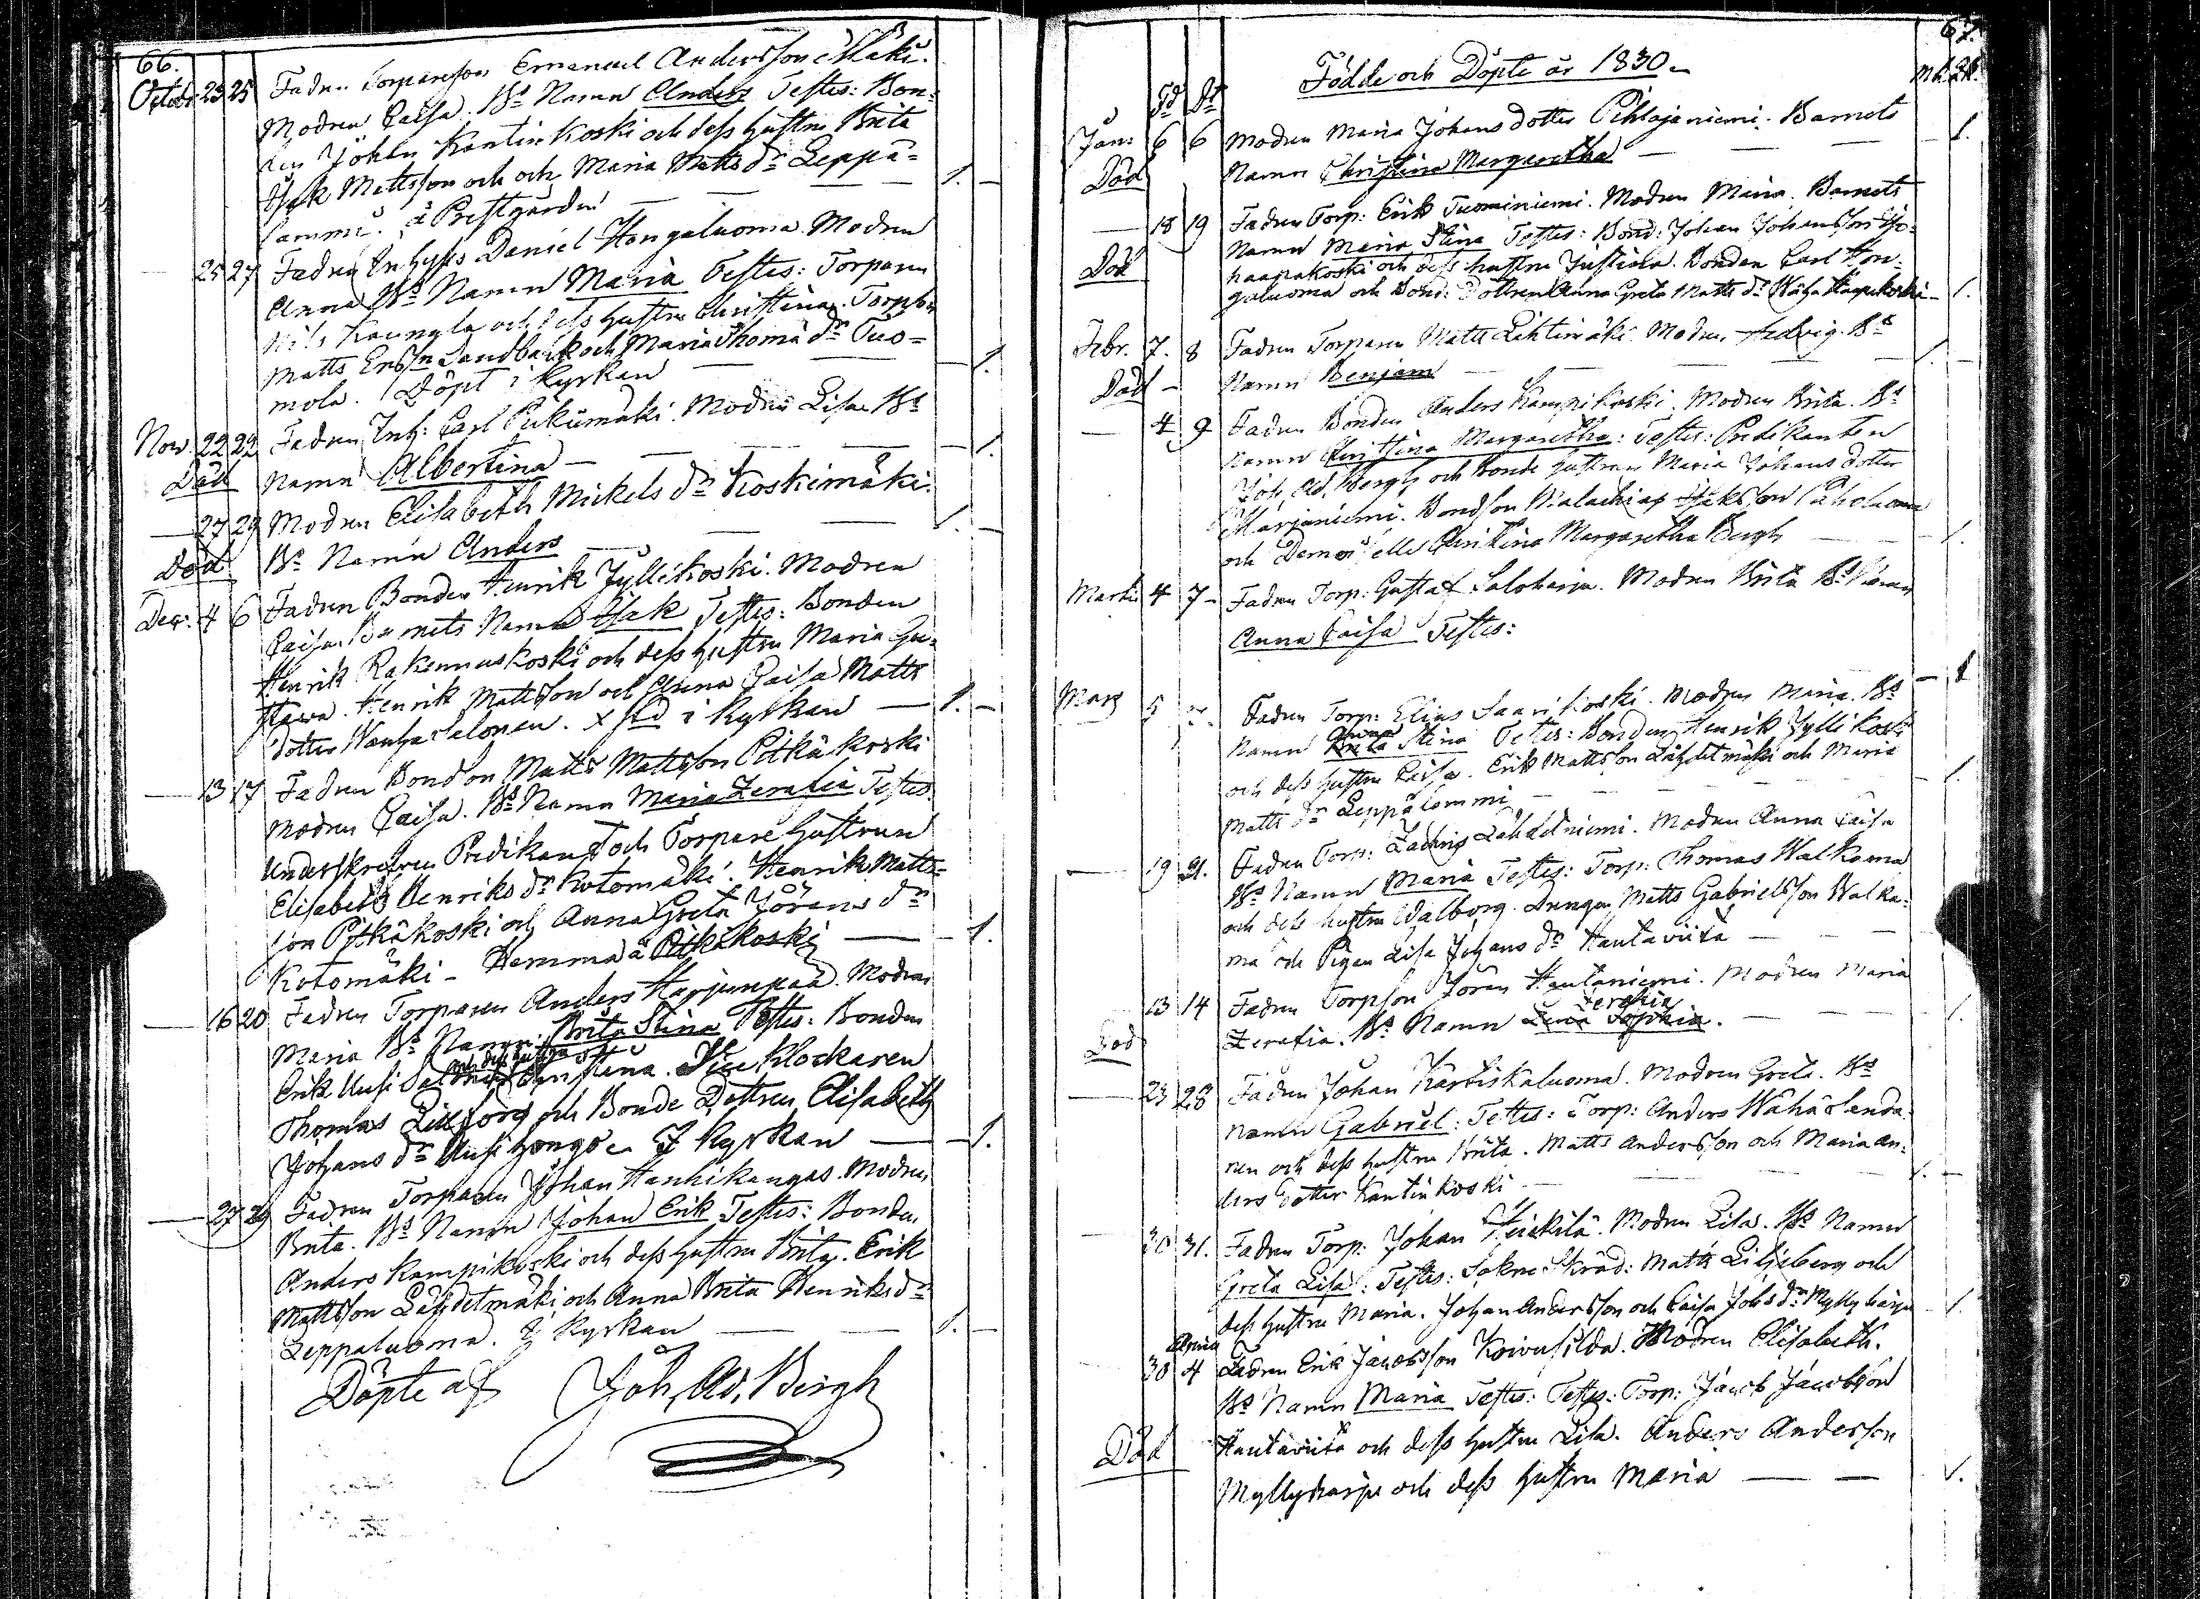 66.
Octobr 23 25 Fadren Torparesson Emanuel Andersson Mäki.
Modren Caisa. Bs Namn Anders Testes: Bon-
den Johan Kantinkoski och dess hustru Brita
Isak Mattsson och och Maria Matts dr Leppä-
lammi. å Prestgården — — — 1. —
— 25 27 Fadren Inhyses Daniel Hongaluoma. Modren
Anna Bs Namn Maria Testes: Torparen
Nils Kaungla och dess hustru Christina. Torpson
Matts Ersson Sandback och Maria Thomä dr Tuo-
mola. Döpt i Kyrkan — — 1. —
Nov. 22 22 Fadren Inh: Carl Pukumäki. Modren Lisa Bs
Död Namn Albertina — — — 1. —
— 27 29 Modren Elisabeth Mickels dr Koskimäki.
Död Bs Namn Anders — — — 1. —
Decr. 4 6 Fadren Bonden Henrik Jyllikoski. Modren
Caisa. Barnets Namn Isak Testes: Bonden
Henrik Rakennuskoski och dess hustru Maria Gu-
stava. Henrik Mattsson och Anna Caisa Matts
dotter Wanha Salonen. i Kyrkan — 1. —
— 13 17 Fadren Bondson Matts Mattsson Pitkäkoski
Modren Caisa. Bs Namn Maria Zerafia Testes
Underskrefven Predikant och Torpare hustrun
Elisabeth Henriks dr Kotomäki. Henrik Matts-
son Pitkäkoski och Anna Greta Jörans dr
Kotomäki — Hemma å Pitkäkoski — 1.
— 16 20 Fadren Torparen Anders Harjunpää. Modren
Maria Bs Namn: Brita Stina Testes: Bonden
och dess hustru
Erik Uusi Salo Christina. Klockaren
Thomas Lillforss och Bonde Dottren Elisabeth
Johans dr Uusi hongo. I Kyrkan — 1.
— 27 29 Fadren Torparen Johan Hanhikangas. Modren
Brita. Bs Namn Johan Erik Testes: Bonden
Anders Kampikoski och dess hustru Brita. Erik
Mattsson Lähdetmäki och Anna Brita Henriks dr
Leppaluoma. I Kyrkan — — 1. —
Döpte af Joh. Ad. Bergh
67.
Födde och Döpte år 1830.
Fd Dt Mk. Qk.
Jan: 6 6 Modren Maria Johans dotter Pihlajaniemi. Barnets
Död Namn Christina Margaretha — — — 1.
— 18 19 Fadren Torp: Erik Tuominiemi. Modren Maria. Barnets
Namn Maria Stina Testes: Bond: Johan Johansson Iso-
Död haapakoski och dess hustru Justina. Bonden Carl Hon-
galuoma och Bond: Dottren Anna Greta Matts dr Wäha Haapakoski — 1.
Febr. 7. 8 Fadren Torparen Matts Lehtimäki. Modren Hedvig. Bs
Död — Namn Benjam — — — 1. —
— 4 9 Fadren Bonden Anders Kampikoski. Modren Brita. Bs
Namn Christina Margaretha: Testes: Predikanten
Joh. Ad. Bergh och Bonde hustrun Maria Johans dotter
Marjaniemi. Bondson Malachias Isaksson Paholuoma
och Demoiselle Christina Margaretha Bergh — — 1.
Martii 4 7 — Fadren Torp: Gustaf Saloharju. Modren Brita Bs Namn
Anna Caisa Testes:
— 1
Mars 5 7. Fadren Torp: Elias Saarikoski. Modren Maria. Bs
Anna
Namn Brita Stina Testes: Bonden Henrik Jyllikoski
och dess hustru Caisa. Erik Mattsson Lähdetmäki och Maria
Matts dr Leppälammi — — — 1.
— 19 21. Fadren Torp: Zachris Lähdetniemi. Modren Anna Caisa
Bs Namn Maria Testes: Torp: Thomas Walkama
och dess hustru Walborg. Drengen Matts Gabrielsson Walka-
ma och Pigan Lisa Johans dr Hautaviita — — —
13 14 Fadren Torpson Jöran Hautaniemi. Modren Maria
Zerafia
Zerafia. Bs Namn Lena Sophia. — — 1.
Död
— 23 28 Fadren Johan Karhiskaluoma. Modren Greta. Bs
Namn Gabriel: Testes: Torp: Anders Wähäslanda-
nen och dess hustru Brita. Matts Andersson och Maria An-
ders Dotter Kantinkoski — — — 1. —
— 30 31. Fadren Torp: Johan Heikilä. Modren Lisa. Bs Namn
Greta Lisa: Testes: Sokne Skräd: Matts Liljeberg och
dess hustru Maria. Johan Andersson och Caisa Johs dr Myllyharju — 1.
Aprill
30 4 Fadren Erik Jacobsson Koivusilda. Modren Elisabeth.
Bs Namn Maria Testes: Testes: Torp: Jacob Jacobsson
Död Hautaviita och dess hustru Lisa. Anders Andersson
Myllyharju och dess hustru Maria — — 1.